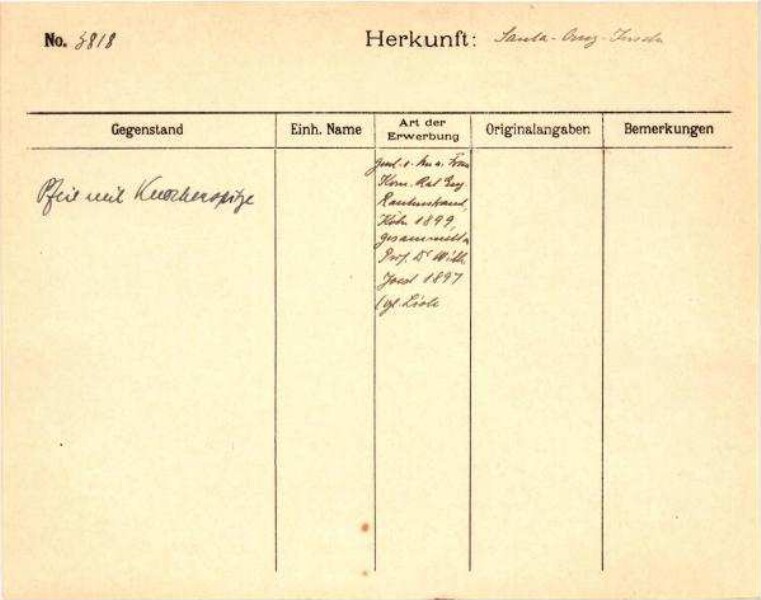 No. 3818 Herkunft: Santa-Cruz-Inseln
Gegenstand Einh. Name Art der Erwerbung Originalangaben Bemerkungen
Pfeil mit Knochenspitze
Frau
Kom. Rat Eug
Rautenstrauch,
Köln 1899,
gesammelt v
Prof. Dr Wilh.
Joest 1897
(vgl. Liste